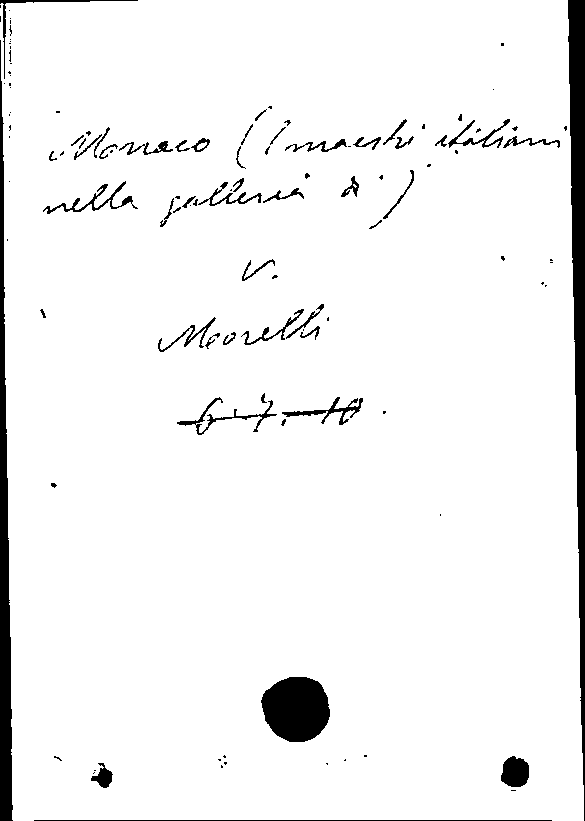 Monaco (I maestri italiani
nella galleria di)
V.
Morelli
6.7.10.